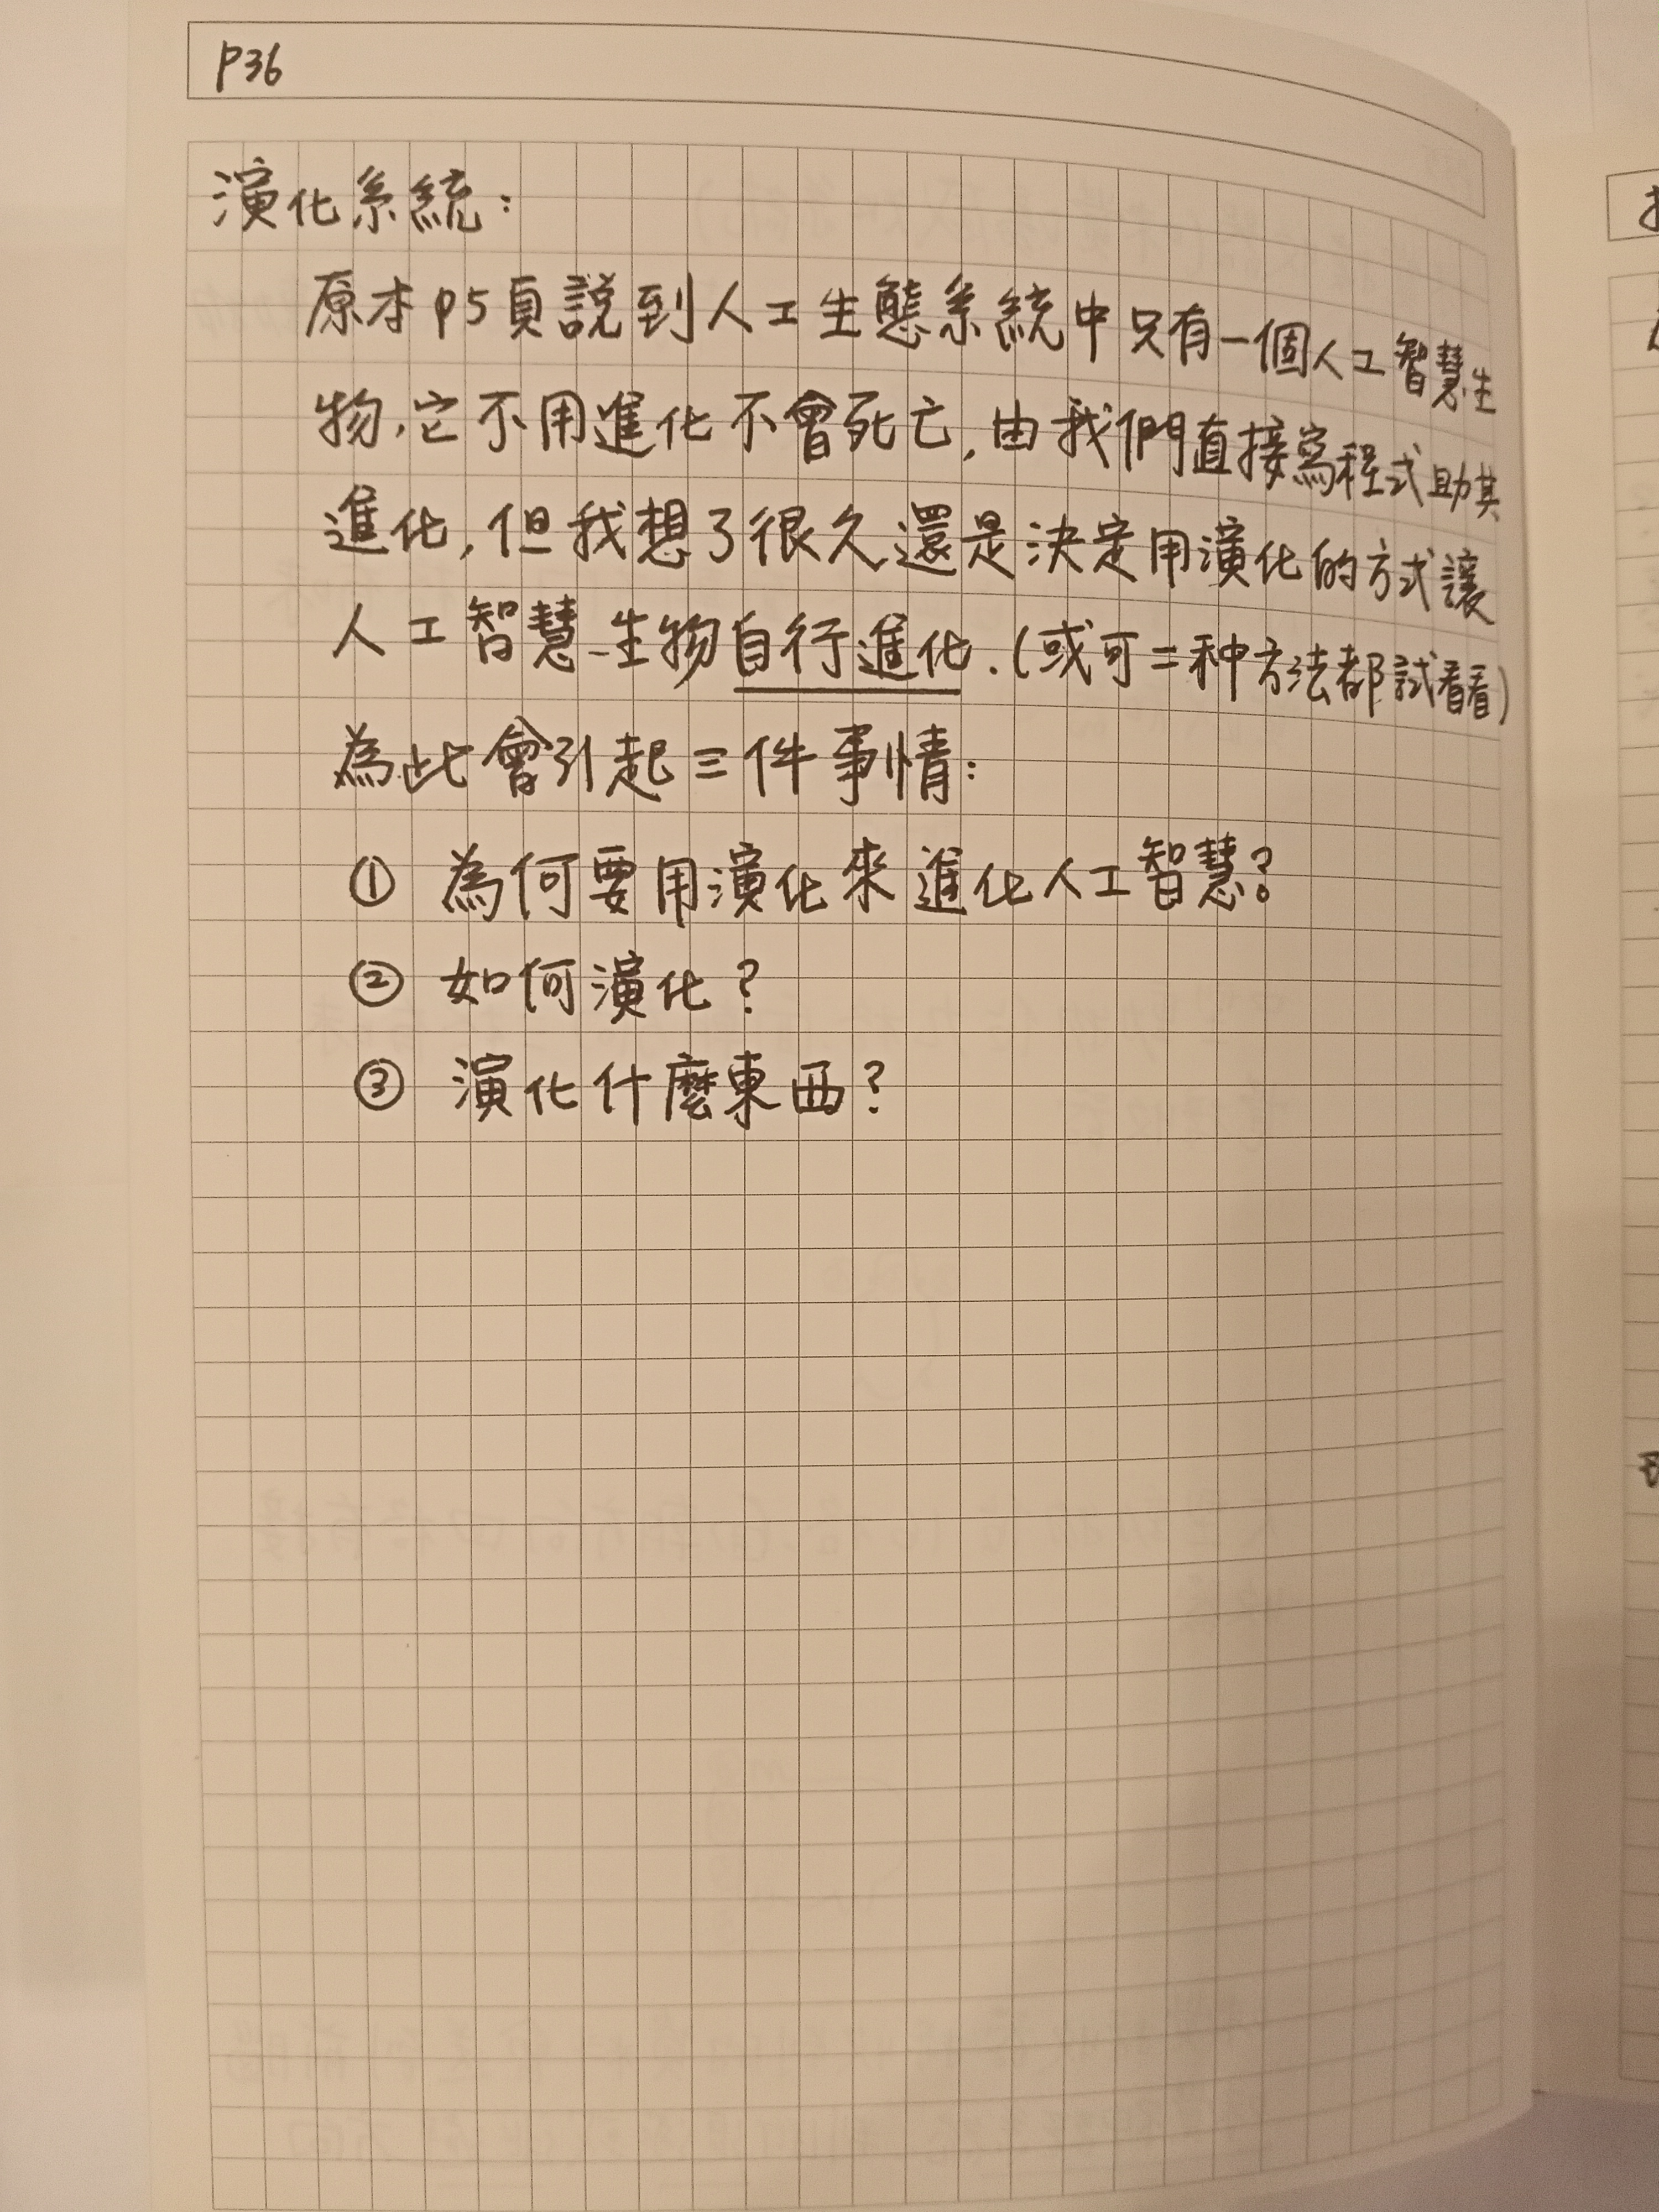 P36
演化系統：
原本P5頁說到人工生態系統中只有一個人工智慧生
物，它不用進化不會死亡，由我們直接寫程式助其
進化，但我想了很久還是決定用演化的方式讓
人工智慧生物自行進化.(或可二种方法都試看看)
為此會引起三件事情：
① 為何要用演化來進化人工智慧？
② 如何演化？
③ 演化什麼東西？